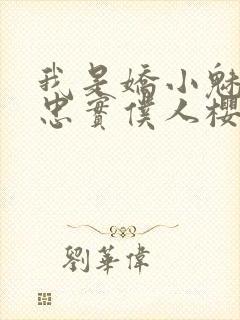 我是嬌小魅
忠實僕人櫻
劉華偉